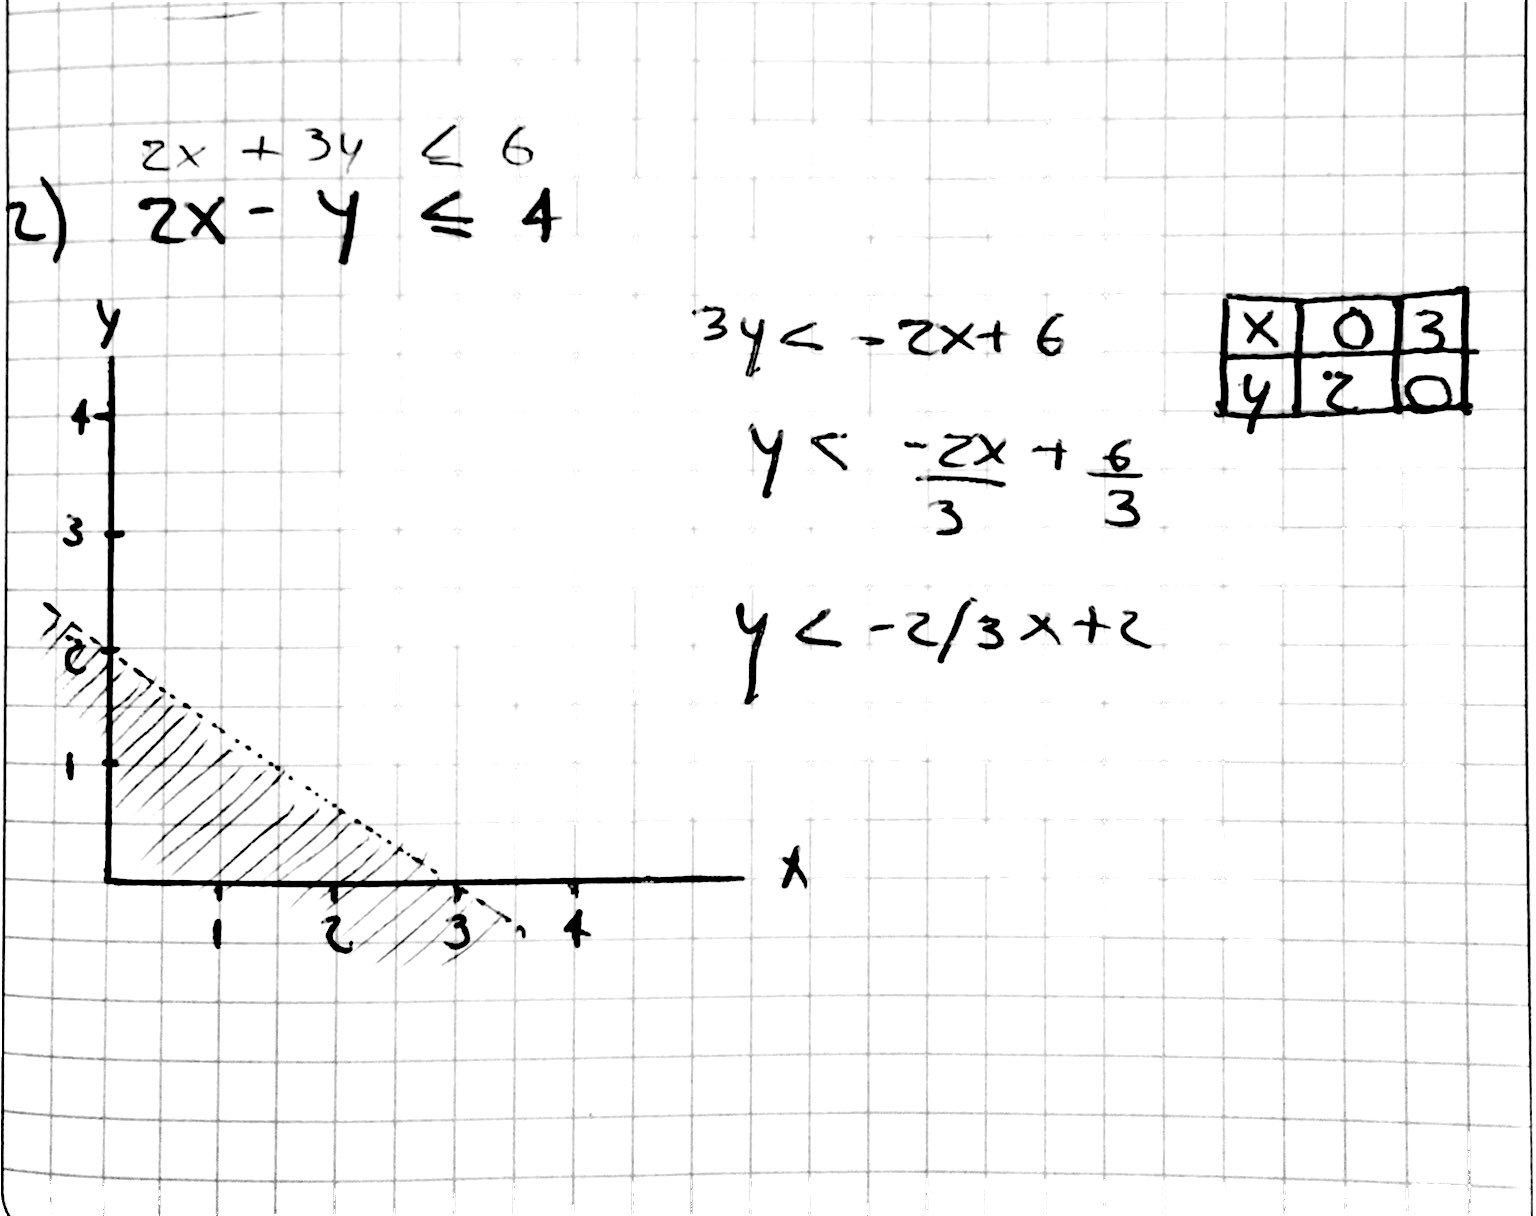 2x + 3y ≤ 6
2) 2x - y ≤ 4
y
4
3
2
1
1 2 3 4
x
3y < - 2x + 6
y < -2x/3 + 6/3
y < -2/3 x + 2
x 0 3
y 2 0